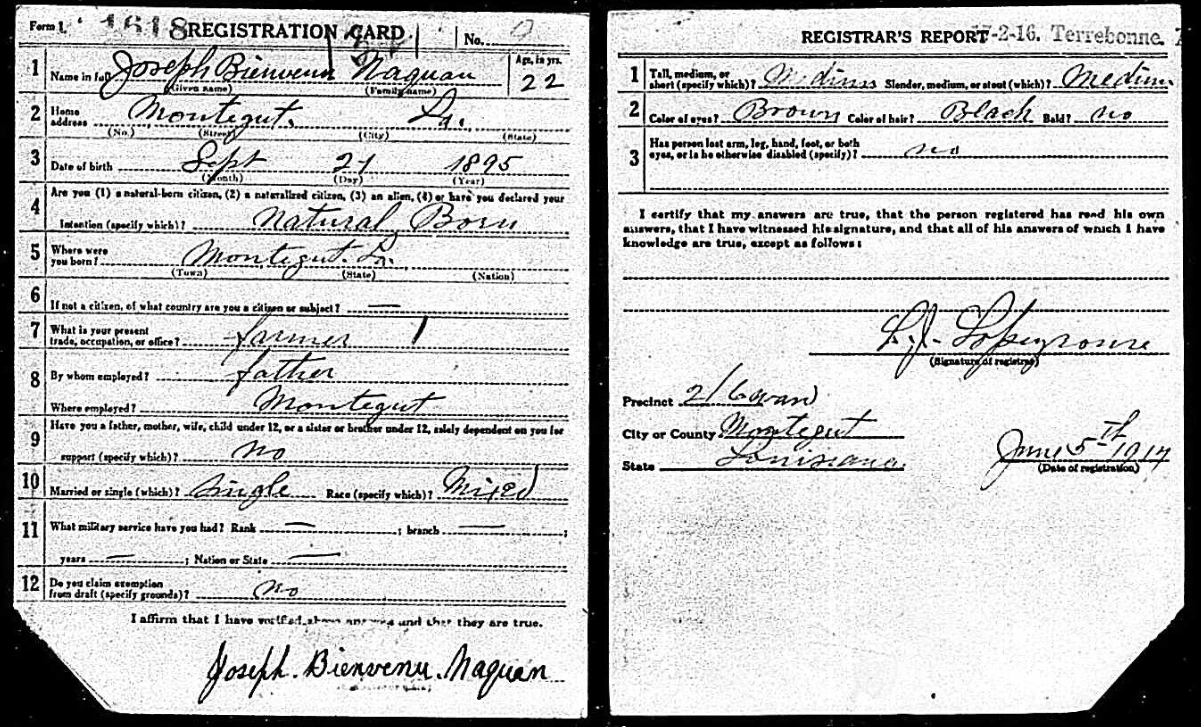 Form 1. 1618 REGISTRATION CARD No.
1 Name in full Joseph Bienvenu Naquan Age, in yrs. 22
(Given name) (Family name)
2 Home address Montegut. La.
(No.) (Street) (City) (State)
3 Date of birth Sept 21 1895
(Month) (Day) (Year)
4 Are you (1) a natural-born citizen, (2) a naturalized citizen, (3) an alien, (4) or have you declared your
intention (specify which)? Natural Born
5 Where were you born? Montegut. La.
(Town) (State) (Nation)
6 If not a citizen, of what country are you a citizen or subject? —
7 What is your present trade, occupation, or office? farmer
8 By whom employed? father
Where employed? Montegut
9 Have you a father, mother, wife, child under 12, or a sister or brother under 12, solely dependent on you for
support (specify which)? no
10 Married or single (which)? single Race (specify which)? Mixed
11 What military service have you had? Rank — ; branch — ;
years — ; Nation or State —
12 Do you claim exemption from draft (specify grounds)? no
I affirm that I have verified above answers and that they are true.
Joseph. Bienvenu. Naquan
17-2-16. Terrebonne.
REGISTRAR'S REPORT
1 Tall, medium, or short (specify which)? Medium Slender, medium, or stout (which)? Medium
2 Color of eyes? Brown Color of hair? Black Bald? no
3 Has person lost arm, leg, hand, foot, or both
eyes, or is he otherwise disabled (specify)? no
I certify that my answers are true, that the person registered has read his own
answers, that I have witnessed his signature, and that all of his answers of which I have
knowledge are true, except as follows:
(Signature of registrar)
Precinct 2/
City or County Montegut
State Louisiana June 5th 1917
(Date of registration)